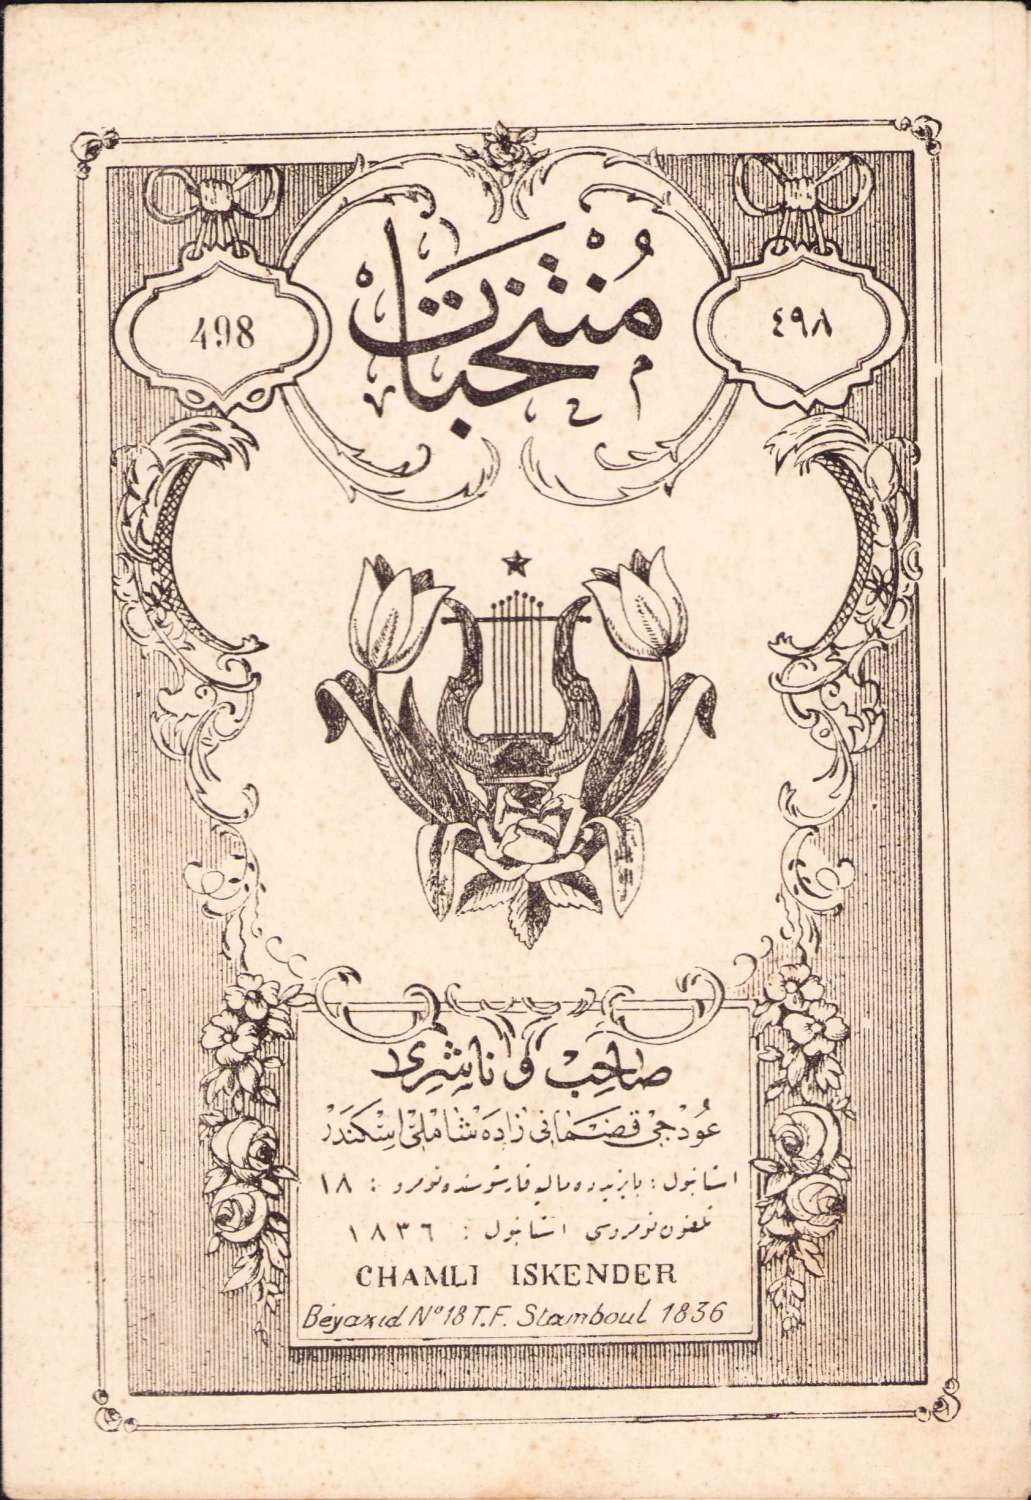 منتخبات
498
٤٩٨
صاحب و ناشری
عودجی قضمانی زاده شاملی اسكندر
استانبول : بایزیدده مالیه قارشوسنده نومرو : ١٨
تلفون نومروسی استانبول : ١٨٣٦
CHAMLI ISKENDER
Béyazid N° 18 T.F. Stamboul 1836